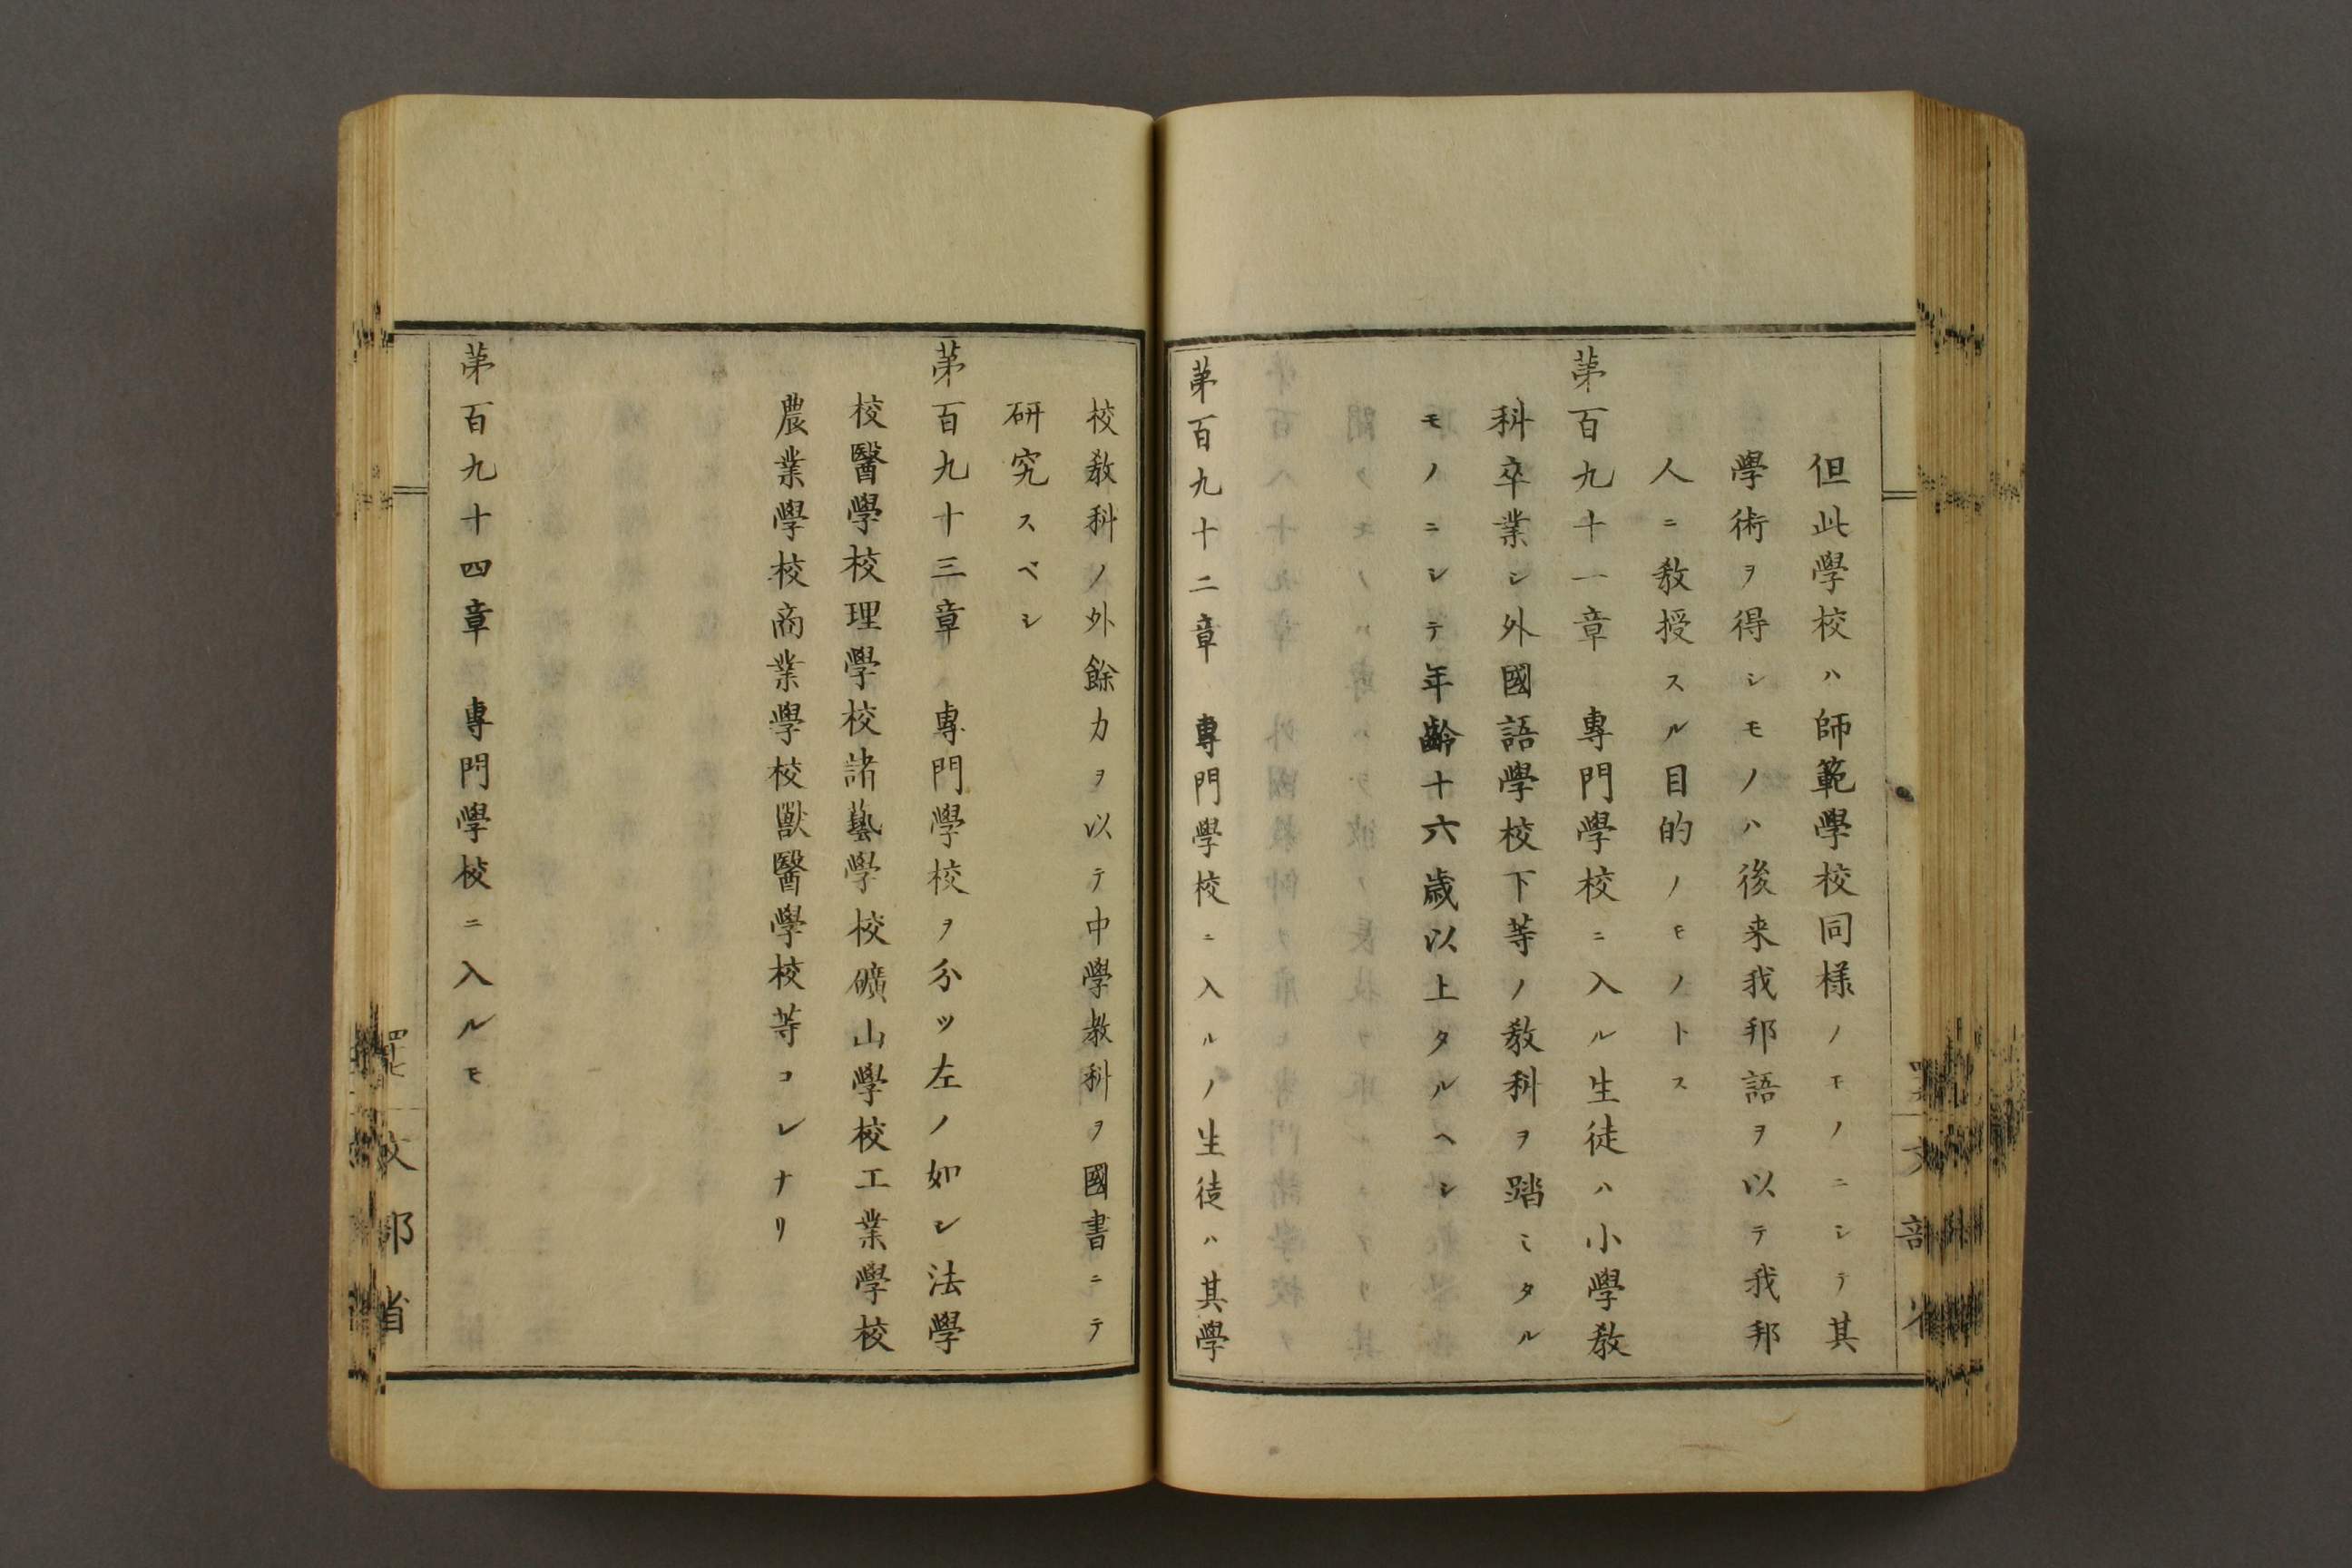 但此學校ハ師範學校同様ノモノニシテ其
學術ヲ得シモノハ後来我邦語ヲ以テ我邦
人ニ敎授スル目的ノモノトス
第百九十一章 專門學校ニ入ル生徒ハ小學敎
科卒業シ外國語學校下等ノ敎科ヲ踏ミタル
モノニシテ年齡十六歳以上タルヘシ
第百九十二章 專門學校ニ入ルノ生徒ハ其學
校敎科ノ外餘力ヲ以テ中學教科ヲ國書ニテ
研究スベシ
第百九十三章 專門學校ヲ分ツ左ノ如シ法學
校醫學校理學校諸藝學校礦山學校工業學校
農業學校商業學校獸醫學校等コレナリ
第百九十四章 專門學校ニ入ルモ
文部省
文部省